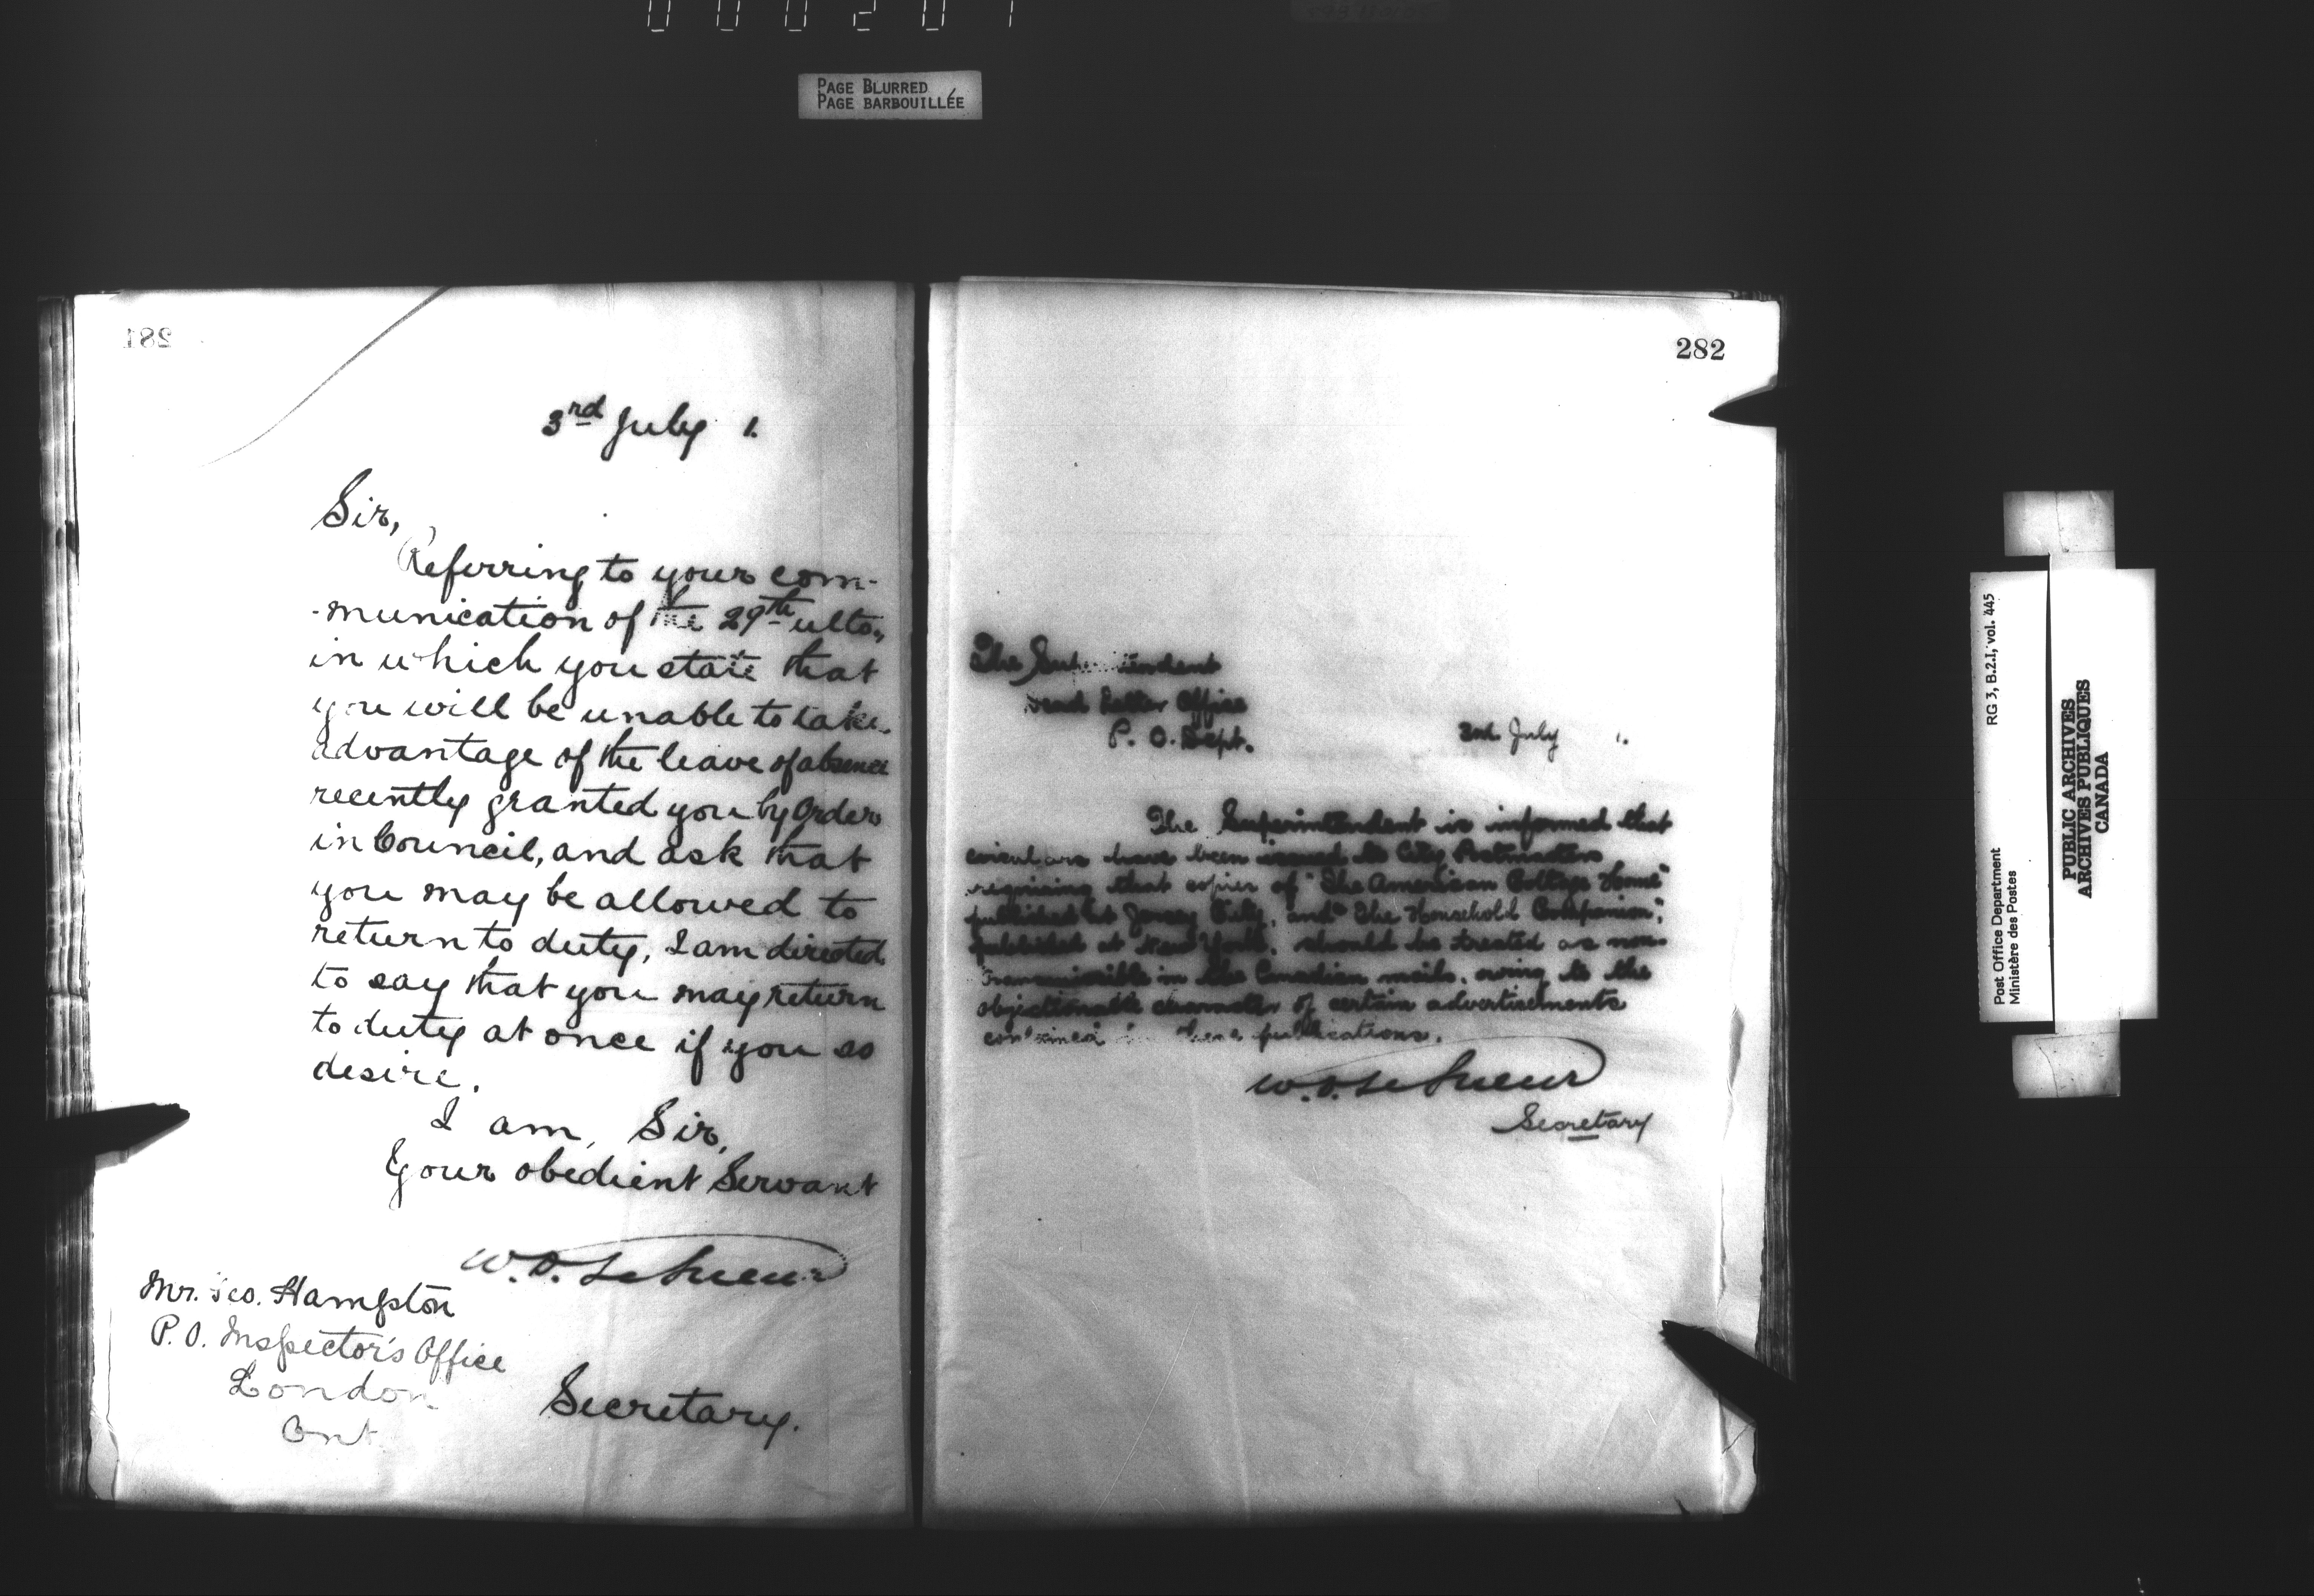 PAGE BLURRED
PAGE BARBOUILLÉE
281
3rd July 1.
Sir,
Referring to your com-
-munication of the 29th ulto.,
in which you state that
you will be unable to take
advantage of the leave of absence
recently granted you by Order
in Council, and ask that
you may be allowed to
return to duty, I am directed
to say that you may return
to duty at once if you so
desire.
I am, Sir,
Your obedient Servant
W.D. LeSueur
Mr. Geo. Hampton
P.O. Inspector's Office
London
Ont
Secretary.
282
The Superintendent
Dead Letter Office
P. O. Dept.
July 1.
The Superintendent is informed that
circulars have been issued to City Postmasters
requiring that copies of "The American Cottage Home"
published at Jersey City, and "The Household Companion",
published at New York, should be treated as non-
transmissible in the Canadian mails, owing to the
objectionable character of certain advertisements
contained these publications.
W.D. LeSueur
Secretary
RG 3, B.2.I, vol. 445
Post Office Department
Ministère des Postes
PUBLIC ARCHIVES
ARCHIVES PUBLIQUES
CANADA